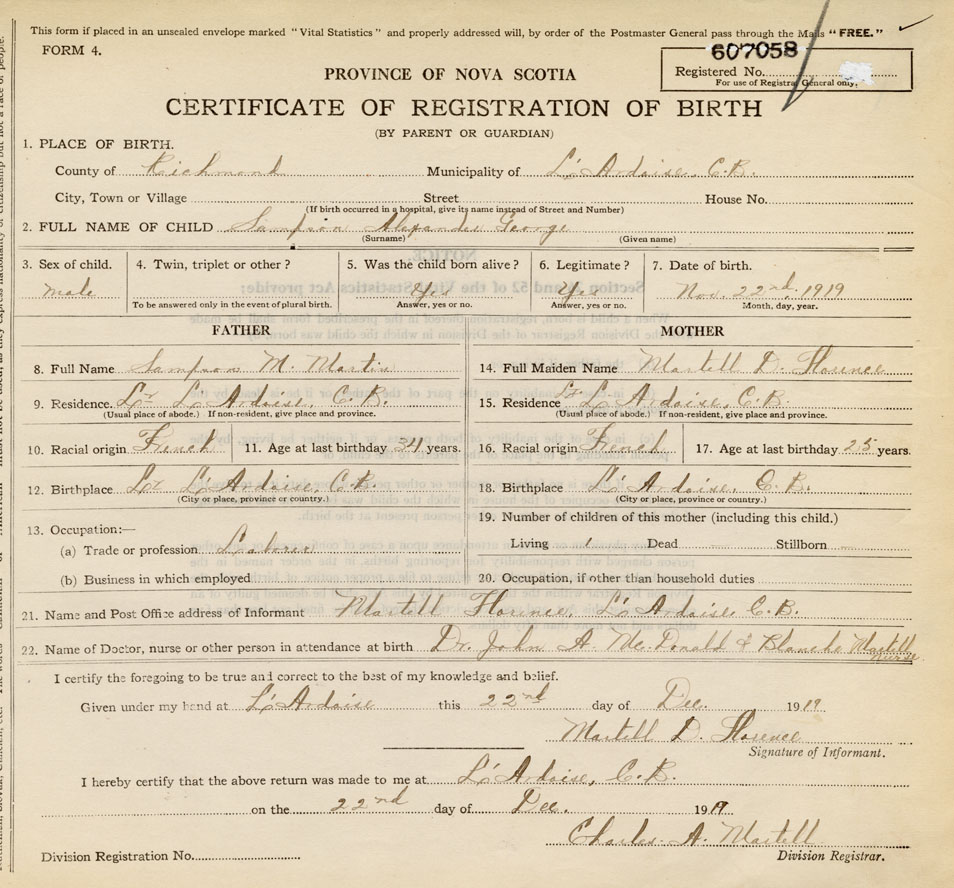 This form if placed in an unsealed envelope marked "Vital Statistics" and properly addressed will, by order of the Postmaster General pass through the Mails "FREE."
FORM 4.
607058
PROVINCE OF NOVA SCOTIA
Registered No.
For use of Registrar General only.
CERTIFICATE OF REGISTRATION OF BIRTH
(BY PARENT OR GUARDIAN)
1. PLACE OF BIRTH.
County of Richmond Municipality of L'Ardoise, C.B.
City, Town or Village Street House No.
(If birth occurred in a hospital, give its name instead of Street and Number)
2. FULL NAME OF CHILD Sampson Alexander George
(Surname) (Given name)
3. Sex of child. 4. Twin, triplet or other? 5. Was the child born alive? 6. Legitimate? 7. Date of birth.
Male Yes Yes Nov. 22nd, 1919
To be answered only in the event of plural birth. Answer, yes or no. Answer, yes or no. Month, day, year.
FATHER MOTHER
8. Full Name Sampson M. Martin 14. Full Maiden Name Martell D. Florence
9. Residence. Lr L'Ardoise, C.B. 15. Residence Lr L'Ardoise, C.B.
(Usual place of abode.) If non-resident, give place and province. (Usual place of abode.) If non-resident, give place and province.
10. Racial origin French 11. Age at last birthday 34 years. 16. Racial origin French 17. Age at last birthday 25 years.
12. Birthplace Lr L'Ardoise, C.B. 18. Birthplace L'Ardoise, C.B.
(City or place, province or country.) (City or place, province or country.)
13. Occupation:— 19. Number of children of this mother (including this child.)
(a) Trade or profession Laborer Living 1 Dead — Stillborn —
(b) Business in which employed 20. Occupation, if other than household duties
21. Name and Post Office address of Informant Martell Florence, L'Ardoise C.B.
22. Name of Doctor, nurse or other person in attendance at birth Dr. John A. McDonald & Blanche Martell
nurse
I certify the foregoing to be true and correct to the best of my knowledge and belief.
Given under my hand at L'Ardoise this 22nd day of Dec. 1919
Martell D. Florence
Signature of Informant.
I hereby certify that the above return was made to me at L'Ardoise, C.B.
on the 22nd day of Dec. 1919
Charles A. Martell
Division Registration No. Division Registrar.